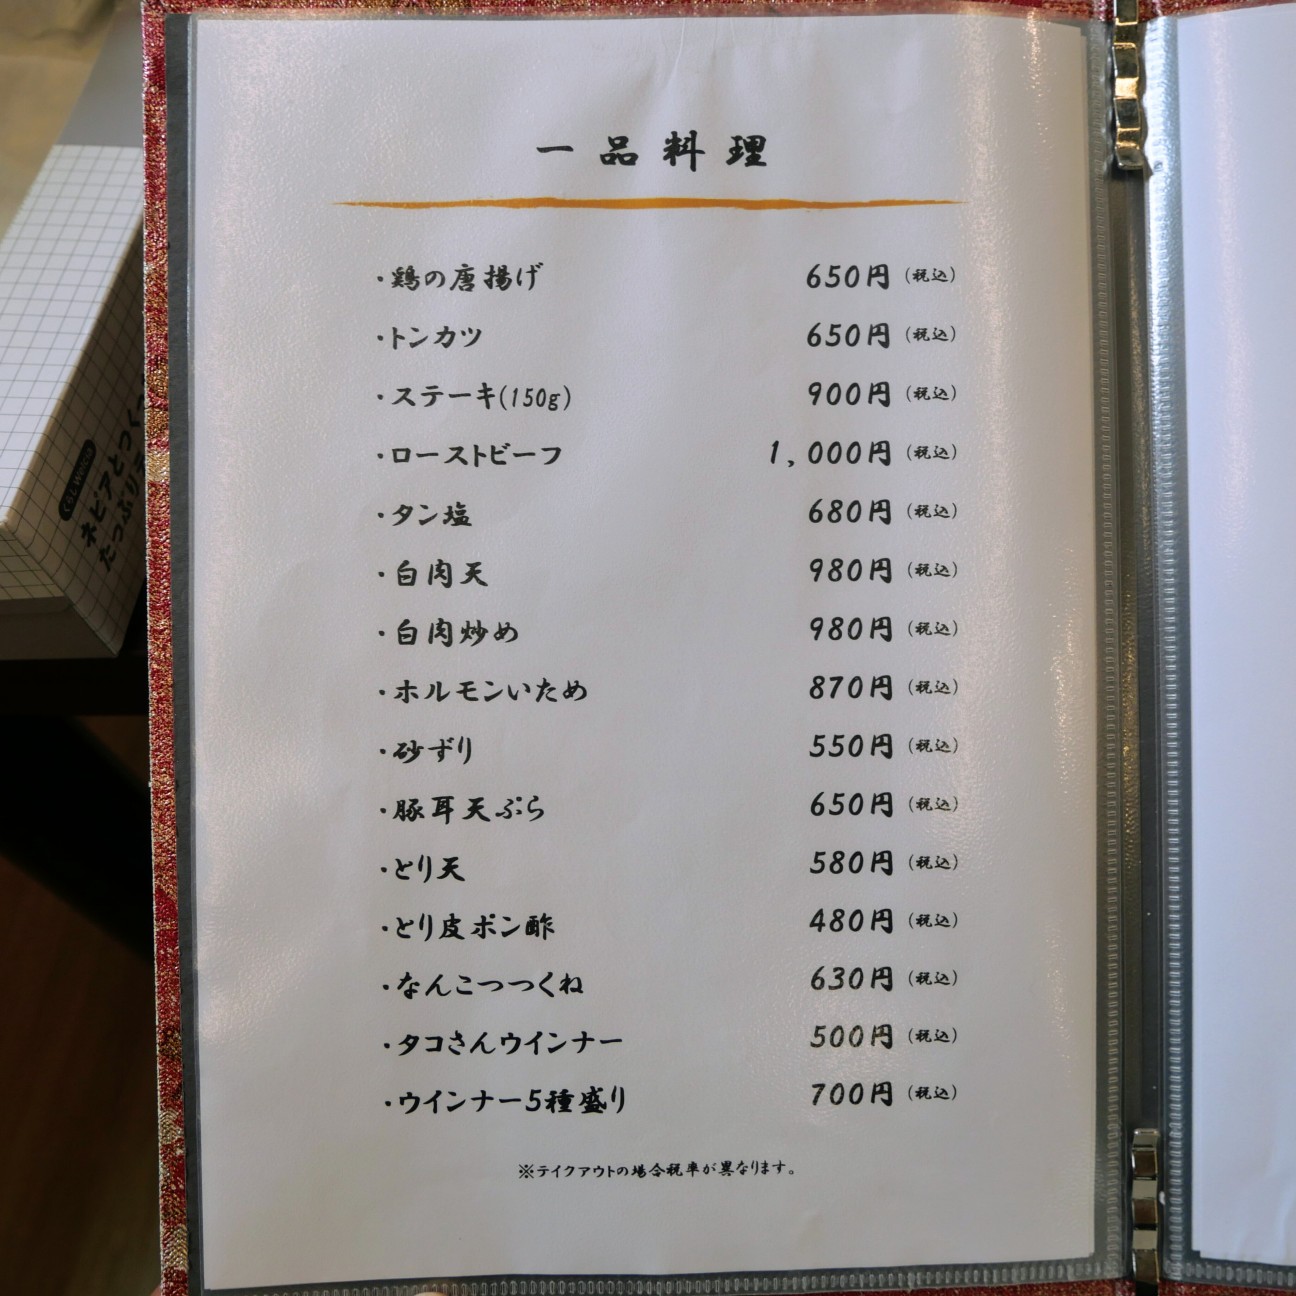 一品料理
・鶏の唐揚げ 650円(税込)
・トンカツ 650円(税込)
・ステーキ(150g) 900円(税込)
・ローストビーフ 1,000円(税込)
・タン塩 680円(税込)
・白肉天 980円(税込)
・白肉炒め 980円(税込)
・ホルモンいため 870円(税込)
・砂ずり 550円(税込)
・豚耳天ぷら 650円(税込)
・とり天 580円(税込)
・とり皮ポン酢 480円(税込)
・なんこつつくね 630円(税込)
・タコさんウインナー 500円(税込)
・ウインナー5種盛り 700円(税込)
※テイクアウトの場合税率が異なります。
ネピアとつく
たっぷり